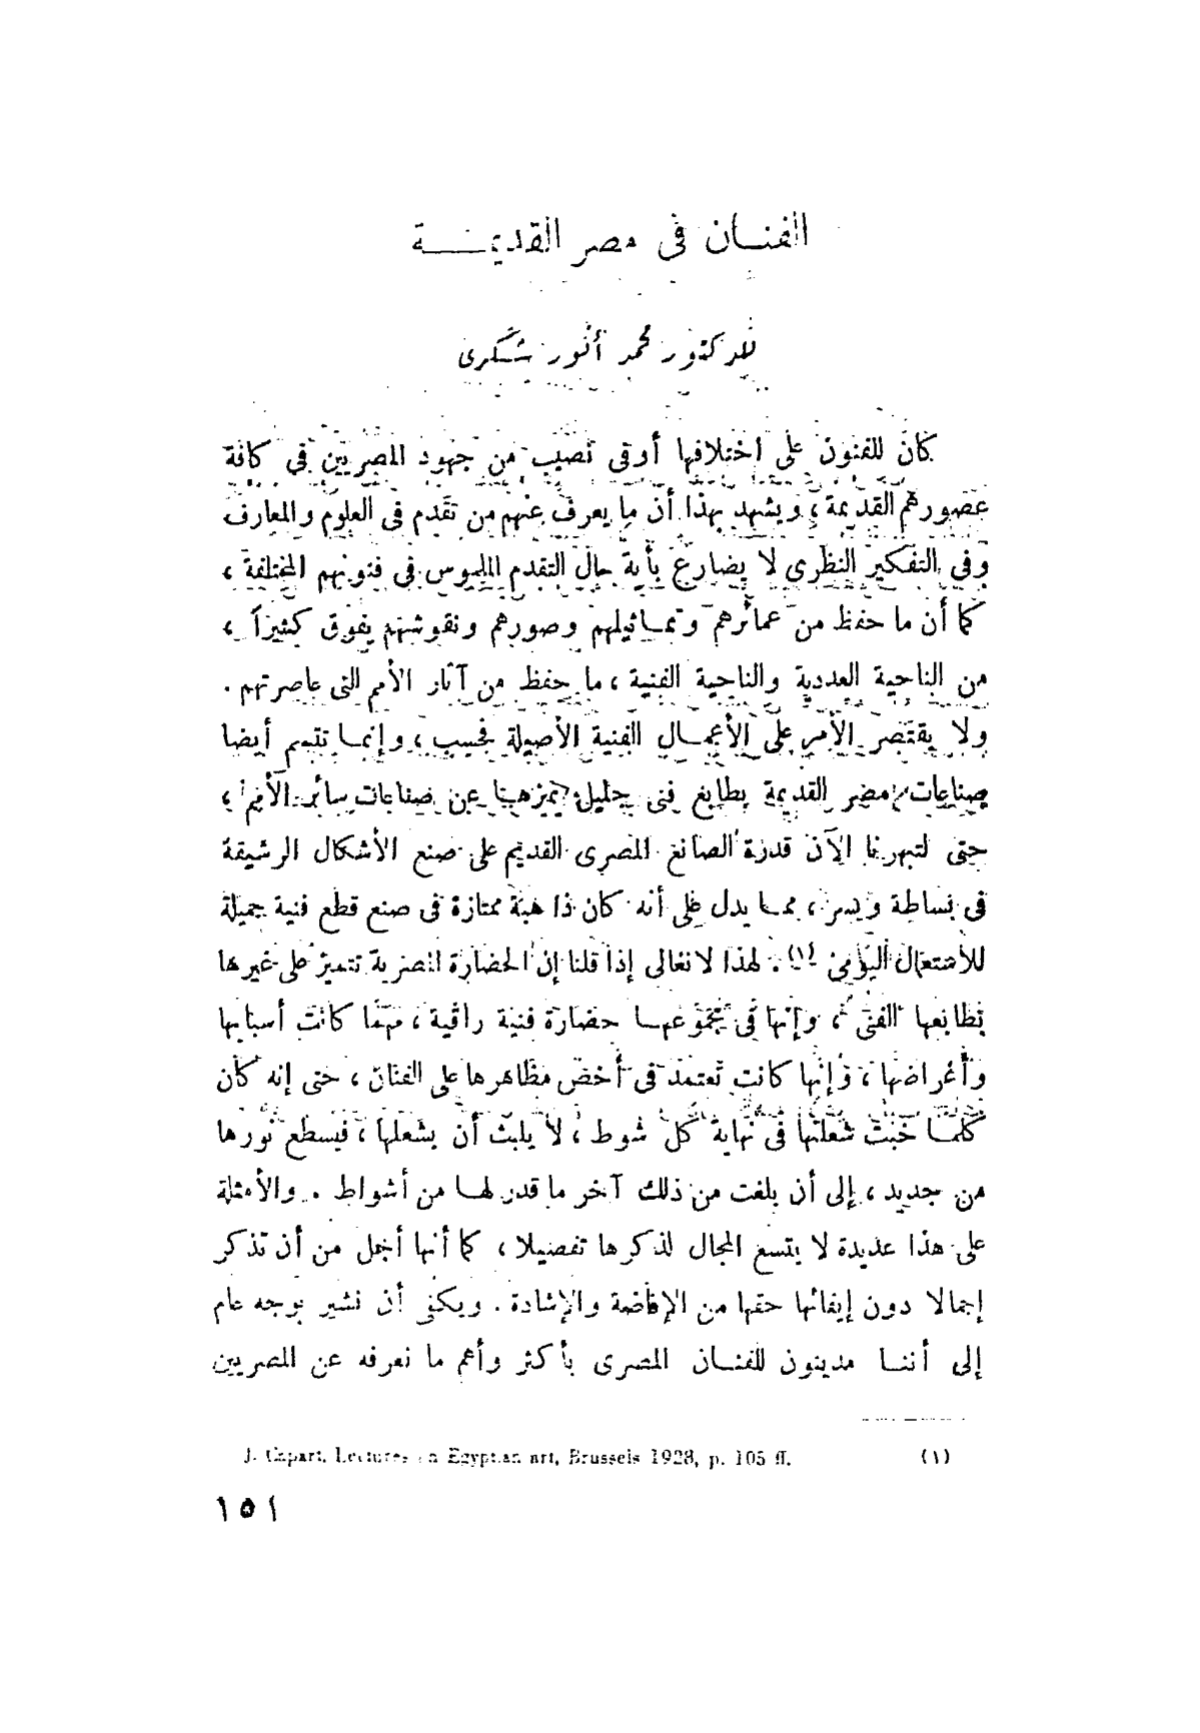 الفنان فى مصر القديمة
للدكتور محمد أنور شكرى
كان للفنون على اختلافها أوفى نصيب من جهود المصريين فى كافة
عصورهم القديمة ، ويشهد بهذا أن ما يعرف عنهم من تقدم فى العلوم والمعارف
وفى التفكير النظرى لا يضارع بأية حال التقدم الملموس فى فنونهم المختلفة ،
كما أن ما حفظ من عمائرهم وتماثيلهم وصورهم ونقوشهم يفوق كثيراً ،
من الناحية العددية والناحية الفنية ، ما حفظ من آثار الأمم التى عاصرتهم .
ولا يقتصر الأمر على الأعمال الفنية الأصيلة فحسب ، وإنما تتسم أيضا
صناعات مصر القديمة بطابع فنى جليل يميزها عن صناعات سائر الأمم ،
حتى لتبهرنا الآن قدرة الصانع المصرى القديم على صنع الأشكال الرشيقة
فى بساطة ويسر ، مما يدل على أنه كان ذا هبة ممتازة فى صنع قطع فنية جميلة
للاستعمال اليومى (١) . لهذا لا نغالى إذا قلنا إن الحضارة المصرية تتميز على غيرها
بطابعها الفنى ، وإنها فى مجموعها حضارة فنية راقية ، مهما كانت أسبابها
وأغراضها ، وإنها كانت تعتمد فى أخص مظاهرها على الفنان ، حتى إنه كان
كلما خبت شعلتها فى نهاية كل شوط ، لا يلبث أن يشعلها ، فيسطع نورها
من جديد ، إلى أن بلغت من ذلك آخر ما قدر لها من أشواط . والأمثلة
على هذا عديدة لا يتسع المجال لذكرها تفصيلا ، كما أنها أجمل من أن تذكر
إجمالا دون إيفائها حقها من الإفاضة والإشادة . ويكفى أن نشير بوجه عام
إلى أننا مدينون للفنان المصرى بأكثر وأهم ما نعرفه عن المصريين
(١) J. Capart, Lectures on Egyptian art, Brussels 1928, p. 105 ff.
١٥١